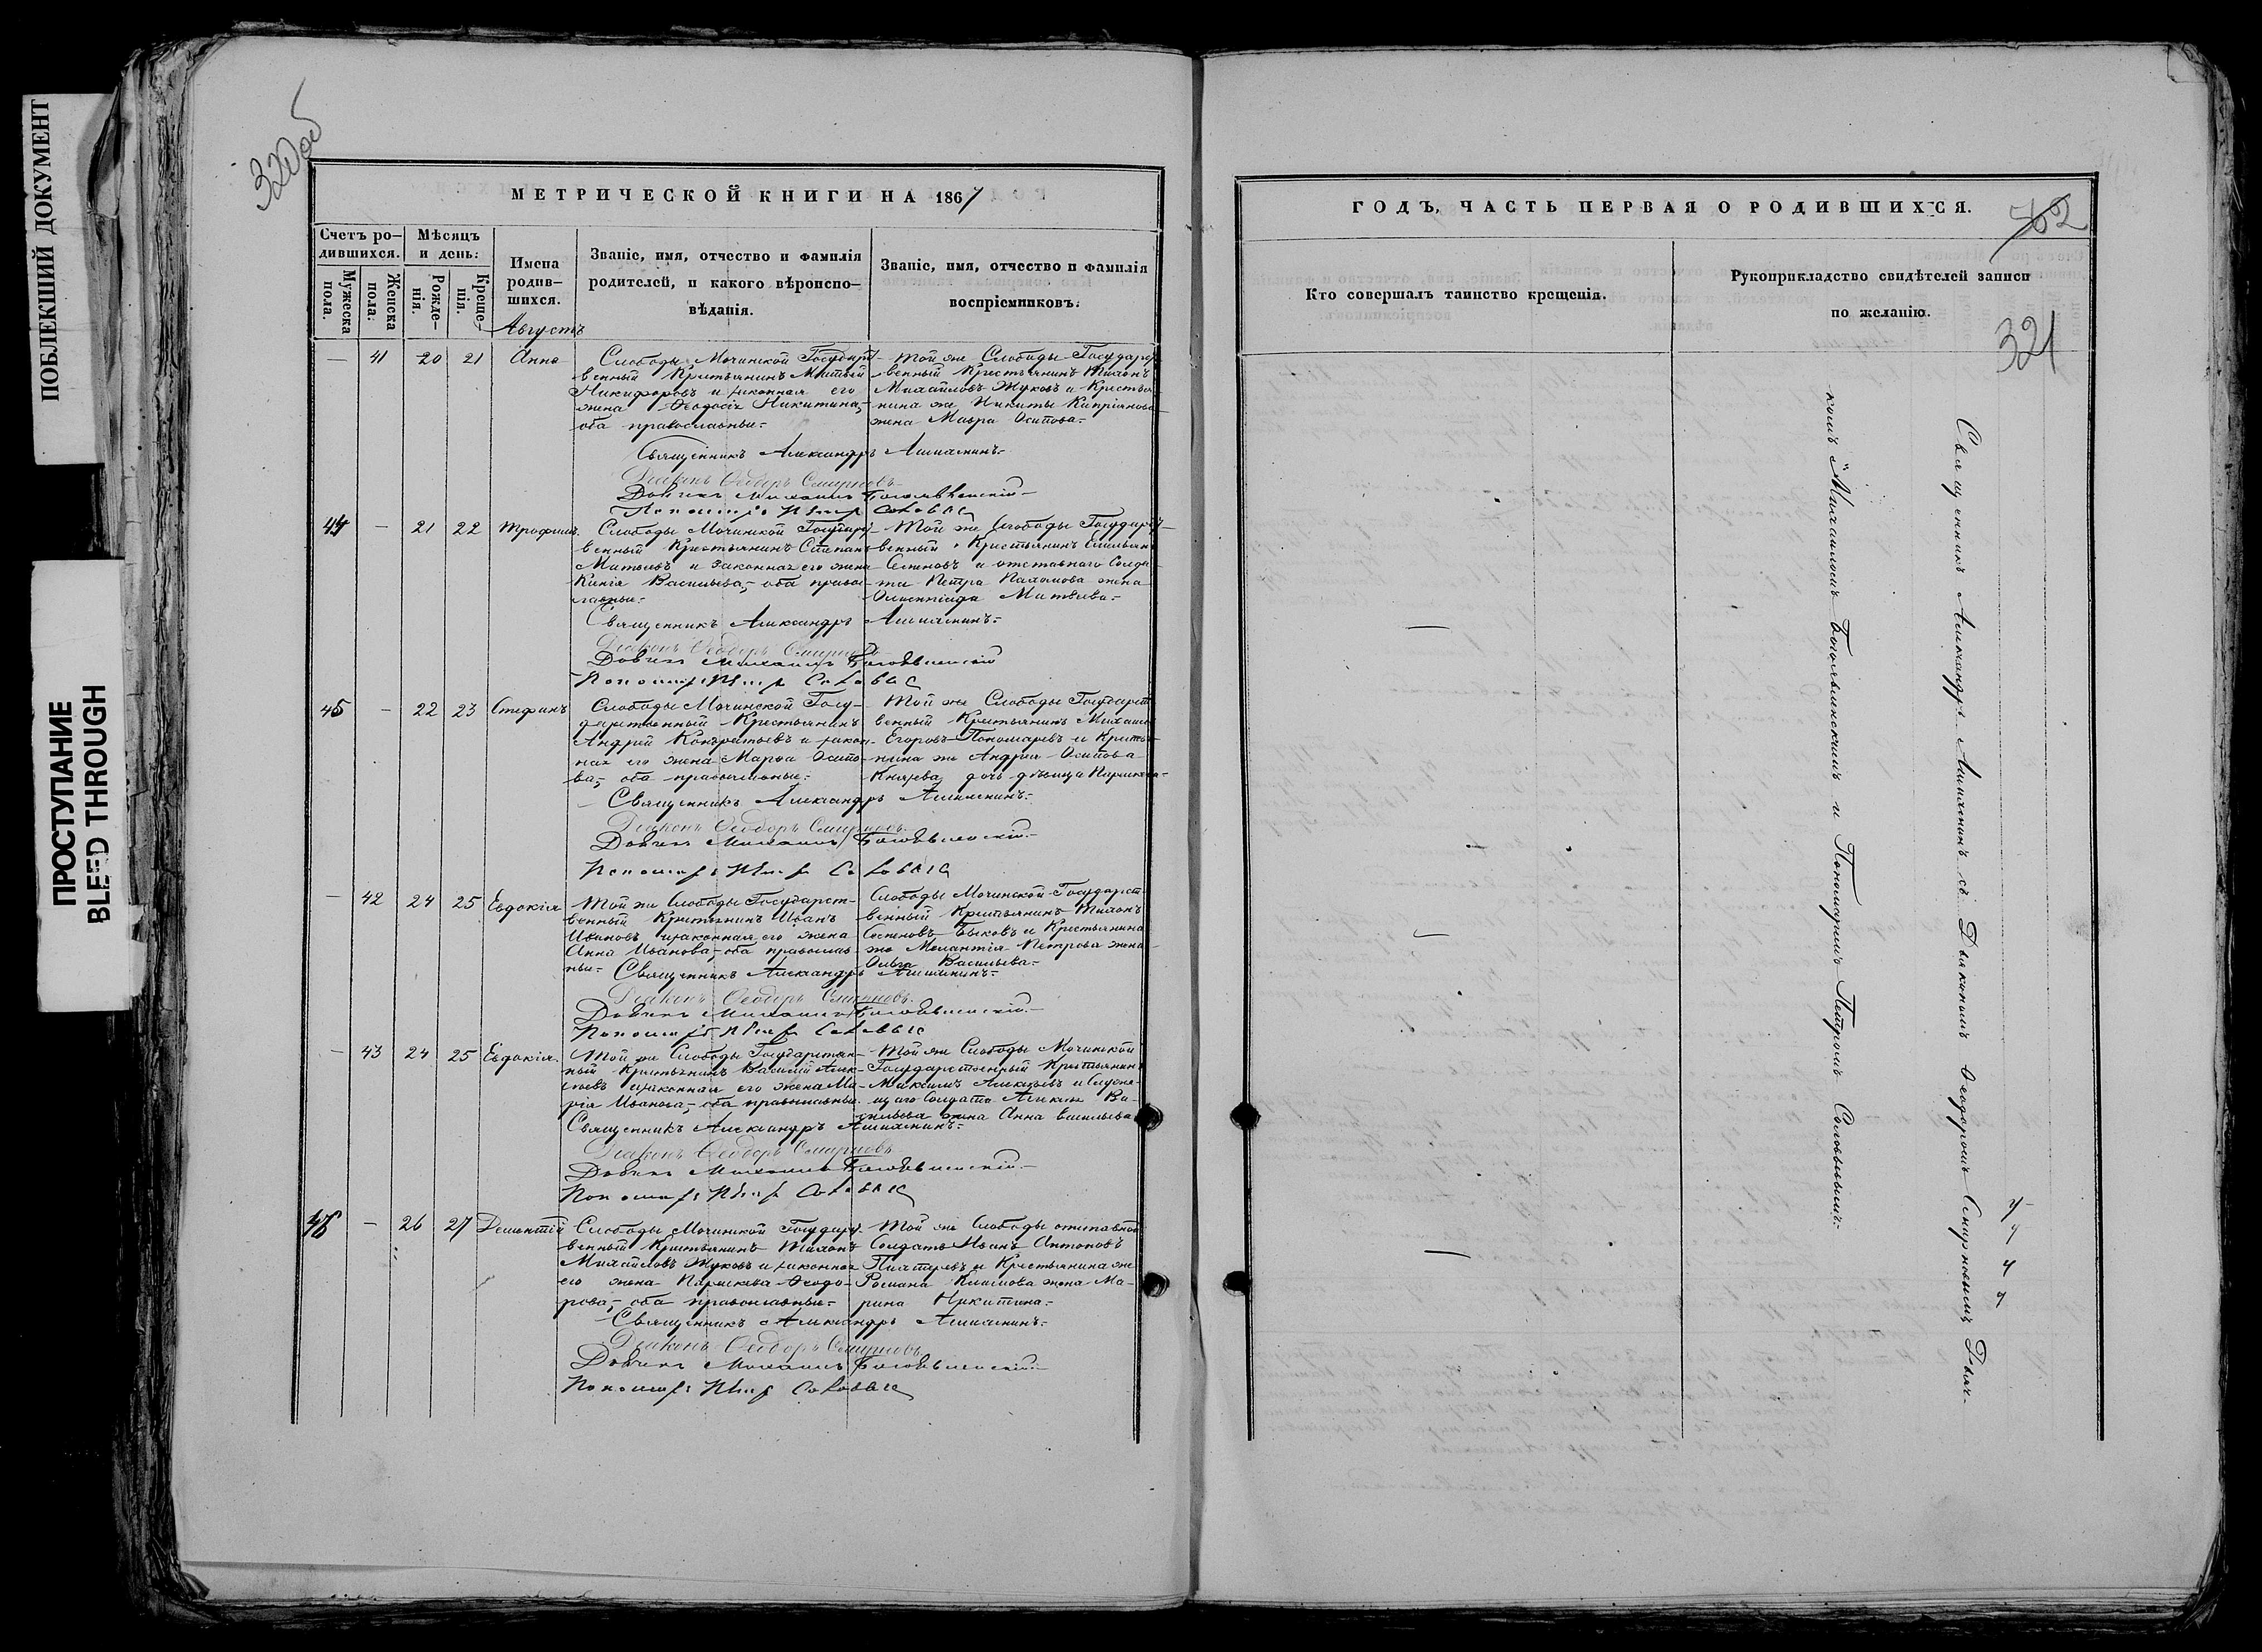 ПОБЛЕКШИЙ ДОКУМЕНТ
ПРОСТУПАНИЕ
BLEED THROUGH
320об
МЕТРИЧЕСКОЙ КНИГИ НА 1867
Счетъ ро-
дившихся.
Мужеска пола.
Женска пола.
Мѣсяцъ
и день.
Рожде-
нія.
Креще-
нія.
Имена
родив-
шихся.
Званіе, имя, отчество и фамилія
родителей, и какого вѣроиспо-
вѣданія.
Званіе, имя, отчество и фамилія
воспріемниковъ.
Августъ
— 41 20 21 Анна
Слободы Мочинской Государст-
венный Крестьянинъ Матвей
Никифоровъ и законная его
жена Ѳеодосія Никитина,-
оба православные.-
Той же Слободы Государст-
венный Крестьянинъ Тихонъ
Михайловъ Жуковъ и Крестья-
нина же Никиты Кипріянова
жена Мавра Осипова.-
Священникъ Александръ
Діаконъ Ѳеодоръ Смирновъ
Дьячекъ Михаилъ Богоявленскій
Пономарь Петръ Соловьевъ
44 — 21 22 Трофимъ.
Слободы Мочинской Государст-
венный Крестьянинъ Степанъ
и законная его жена
Васильева,- оба право-
славные.-
Той же Слободы Государст-
венный Крестьянинъ Емельянъ
Семеновъ и отставнаго Солда-
та Петра Пахомова жена
Матвеева.-
Священникъ Александръ
Діаконъ Ѳеодоръ Смирновъ
Дьячекъ Михаилъ Богоявленскій
Пономарь Петръ Соловьевъ
45 — 22 23 Стефанъ
Слободы Мочинской Госу-
дарственный Крестьянинъ
Андрей Кондратьевъ и закон-
ная его жена Марѳа Осипо-
ва,- оба православные.-
Той же Слободы Государст-
венный Крестьянинъ Михаилъ
Егоровъ Пономаревъ и Крестья-
нина же Андрея Осипова
Князева дочь дѣвица
Священникъ Александръ
Діаконъ Ѳеодоръ Смирновъ
Дьячекъ Михаилъ Богоявленскій
Пономарь Петръ Соловьевъ
— 42 24 25 Евдокія
Той же Слободы Государст-
венный Крестьянинъ Иванъ
Ивановъ и законная его жена
Анна Иванова,- оба православ-
ные.-
Слободы Мочинской Государст-
венный Крестьянинъ Тихонъ
Семеновъ Быковъ и Крестьянина
же Петрова жена
Ольга Васильева.-
Священникъ Александръ
Діаконъ Ѳеодоръ Смирновъ
Дьячекъ Михаилъ Богоявленскій
Пономарь Петръ Соловьевъ
— 43 24 25 Евдокія.
Той же Слободы Государствен-
ный Крестьянинъ Василій Алек-
сѣевъ и законная его жена Ма-
рія Иванова,- оба православные.
Той же Слободы Мочинской
Государственный Крестьянинъ
Максимъ Алексѣевъ и
Солдата Ва-
сильева жена Анна Васильева
Священникъ Александръ
Діаконъ Ѳеодоръ Смирновъ
Дьячекъ Михаилъ Богоявленскій
Пономарь Петръ Соловьевъ
46 — 26 27 Дементій
Слободы Мочинской Государст-
венный Крестьянинъ Тихонъ
Михайловъ Жуковъ и законная
его жена Параскева Ѳеодо-
рова,- оба православные.-
Той же Слободы отставной
Солдатъ Иванъ Антоновъ
и Крестьянина же
Романа Климова жена Ма-
рина Никитина.-
Священникъ Александръ
Діаконъ Ѳеодоръ Смирновъ
Дьячекъ Михаилъ Богоявленскій
Пономарь Петръ Соловьевъ
ГОДЪ, ЧАСТЬ ПЕРВАЯ О РОДИВШИХСЯ.
762
321
Кто совершалъ таинство крещенія.
Рукоприкладство свидѣтелей записи
по желанію.
Священникъ Александръ съ Діакономъ Ѳеодоромъ Смирновымъ Дьяч-
комъ Михаиломъ Богоявленскимъ и Пономаремъ Петромъ Соловьевымъ.-